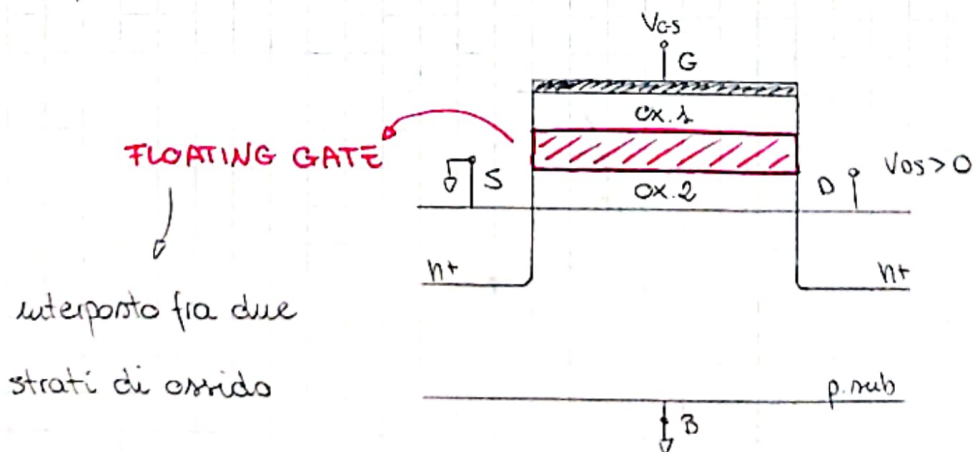 VGS
G
ox.1
FLOATING GATE
S
ox.2
D
VDS>0
n+
n+
interposto fra due
strati di ossido
p.sub
B